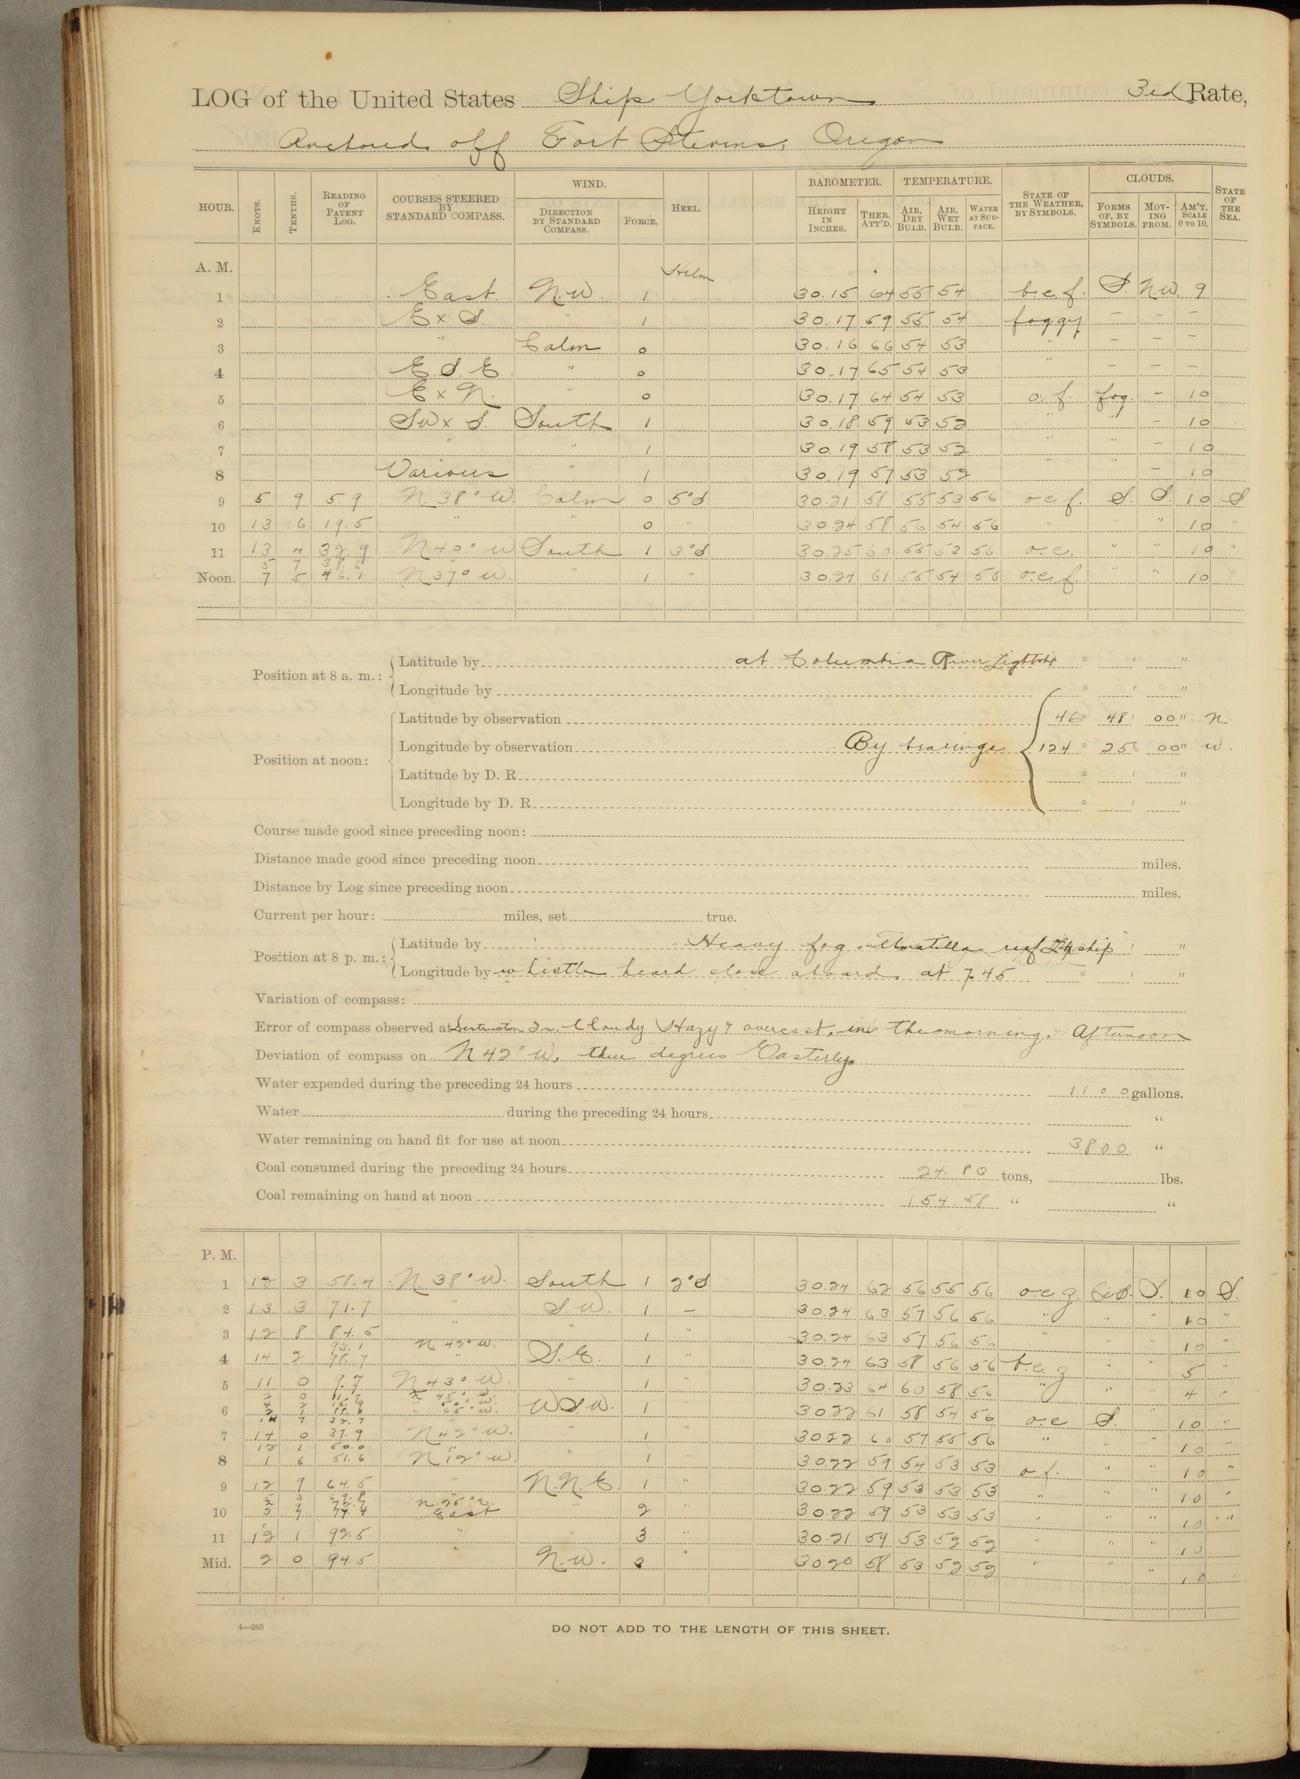 LOG of the United States Ship Yorktown 3rd Rate,
Anchored off Fort Stevens, Oregon
HOUR. KNOTS. TENTHS. READING OF PATENT LOG. COURSES STEERED BY STANDARD COMPASS. WIND. DIRECTION BY STANDARD COMPASS. FORCE. HEEL. BAROMETER. HEIGHT IN INCHES. THER. ATT'D. TEMPERATURE. AIR, DRY BULB. AIR, WET BULB. WATER AT SURFACE. STATE OF THE WEATHER, BY SYMBOLS. CLOUDS. FORMS OF, BY SYMBOLS. MOVING FROM. AM'T. SCALE 0 TO 10. STATE OF THE SEA.
A. M. Helm
1 East N.W. 1 30.15 64 55 54 b.c.f. S. NW. 9
2 E x S. " 1 30.17 59 55 54 foggy — — —
3 " Calm 0 30.16 66 54 53 " — — —
4 E.S.E. " 0 30.17 65 54 53 " — — —
5 E x N. " 0 30.17 64 54 53 o.f. fog. — 10
6 SW x S. South 1 30.18 59 53 52 " " — 10
7 " " 1 30.19 58 53 52 " " — 10
8 Various " 1 30.19 57 53 52 " " — 10
9 5 9 5.9 N.38°W. Calm 0 5°S 30.21 58 55 53 56 o.c.f. S. S. 10 S
10 13 6 19.5 " " 0 " 30.24 58 56 54 56 " " " 10 "
11 13 4 32.9 N40°W South 1 3°S 30.25 60 55 53 56 o.c. " " 10 "
5 7 38.6
Noon. 7 5 46.1 N37°W. " 1 " 30.24 61 55 54 56 o.c.f. " " 10
Position at 8 a. m.: Latitude by at Columbia River Lightship ° ' "
Longitude by ° ' "
Position at noon: Latitude by observation 46° 48' 00" N
Longitude by observation By bearings 124° 25' 00" W.
Latitude by D. R. ° ' "
Longitude by D. R. ° ' "
Course made good since preceding noon:
Distance made good since preceding noon miles.
Distance by Log since preceding noon miles.
Current per hour: miles, set true.
Position at 8 p. m.: Latitude by Heavy fog. Umatilla reef Lightship ' "
Longitude by whistle heard close aboard at 7.45 ° ' "
Variation of compass:
Error of compass observed at Destruction Is. Cloudy Hazy & overcast, in the morning. Afternoon
Deviation of compass on N 42° W, three degrees Easterly.
Water expended during the preceding 24 hours 1100 gallons.
Water during the preceding 24 hours "
Water remaining on hand fit for use at noon 3800 "
Coal consumed during the preceding 24 hours 24.80 tons, lbs.
Coal remaining on hand at noon 154.58 " "
P. M.
1 12 3 58.4 N.38°W. South 1 2°S 30.24 62 56 55 56 o.c.g. S. 10 S.
2 13 3 71.7 " S W. 1 — 30.24 63 57 56 56 " " " 10 "
3 12 8 84.5 " " 1 " 30.24 63 57 56 56 " " " 10 "
93.1 N 42° W.
4 14 2 98.7 " S.E. 1 " 30.24 63 58 56 56 b.c.g " " 5 "
5 11 0 9.7 N43°W. " 1 " 30.23 64 60 58 56 " " " 4 "
6 WSW. 1 " 30.22 61 58 54 56 o.c S. " 10 "
7 14 0 37.9 N42°W. " 1 " 30.22 60 57 55 56 " " " 10 "
12 1 50.0 "
8 1 6 51.6 N12°W. " 1 " 30.22 59 54 53 53 o.f. " " 10 "
9 12 9 64.5 " N.N.E. 1 " 30.22 59 53 53 53 " " " 10 "
10 East " 2 " 30.22 59 53 53 53 " " " 10 "
11 12 1 92.5 " " 3 " 30.21 59 53 52 52 " " " 10
Mid. 2 0 94.5 " N.W. 2 " 30.20 58 53 52 52 " " " 10
4—265
DO NOT ADD TO THE LENGTH OF THIS SHEET.